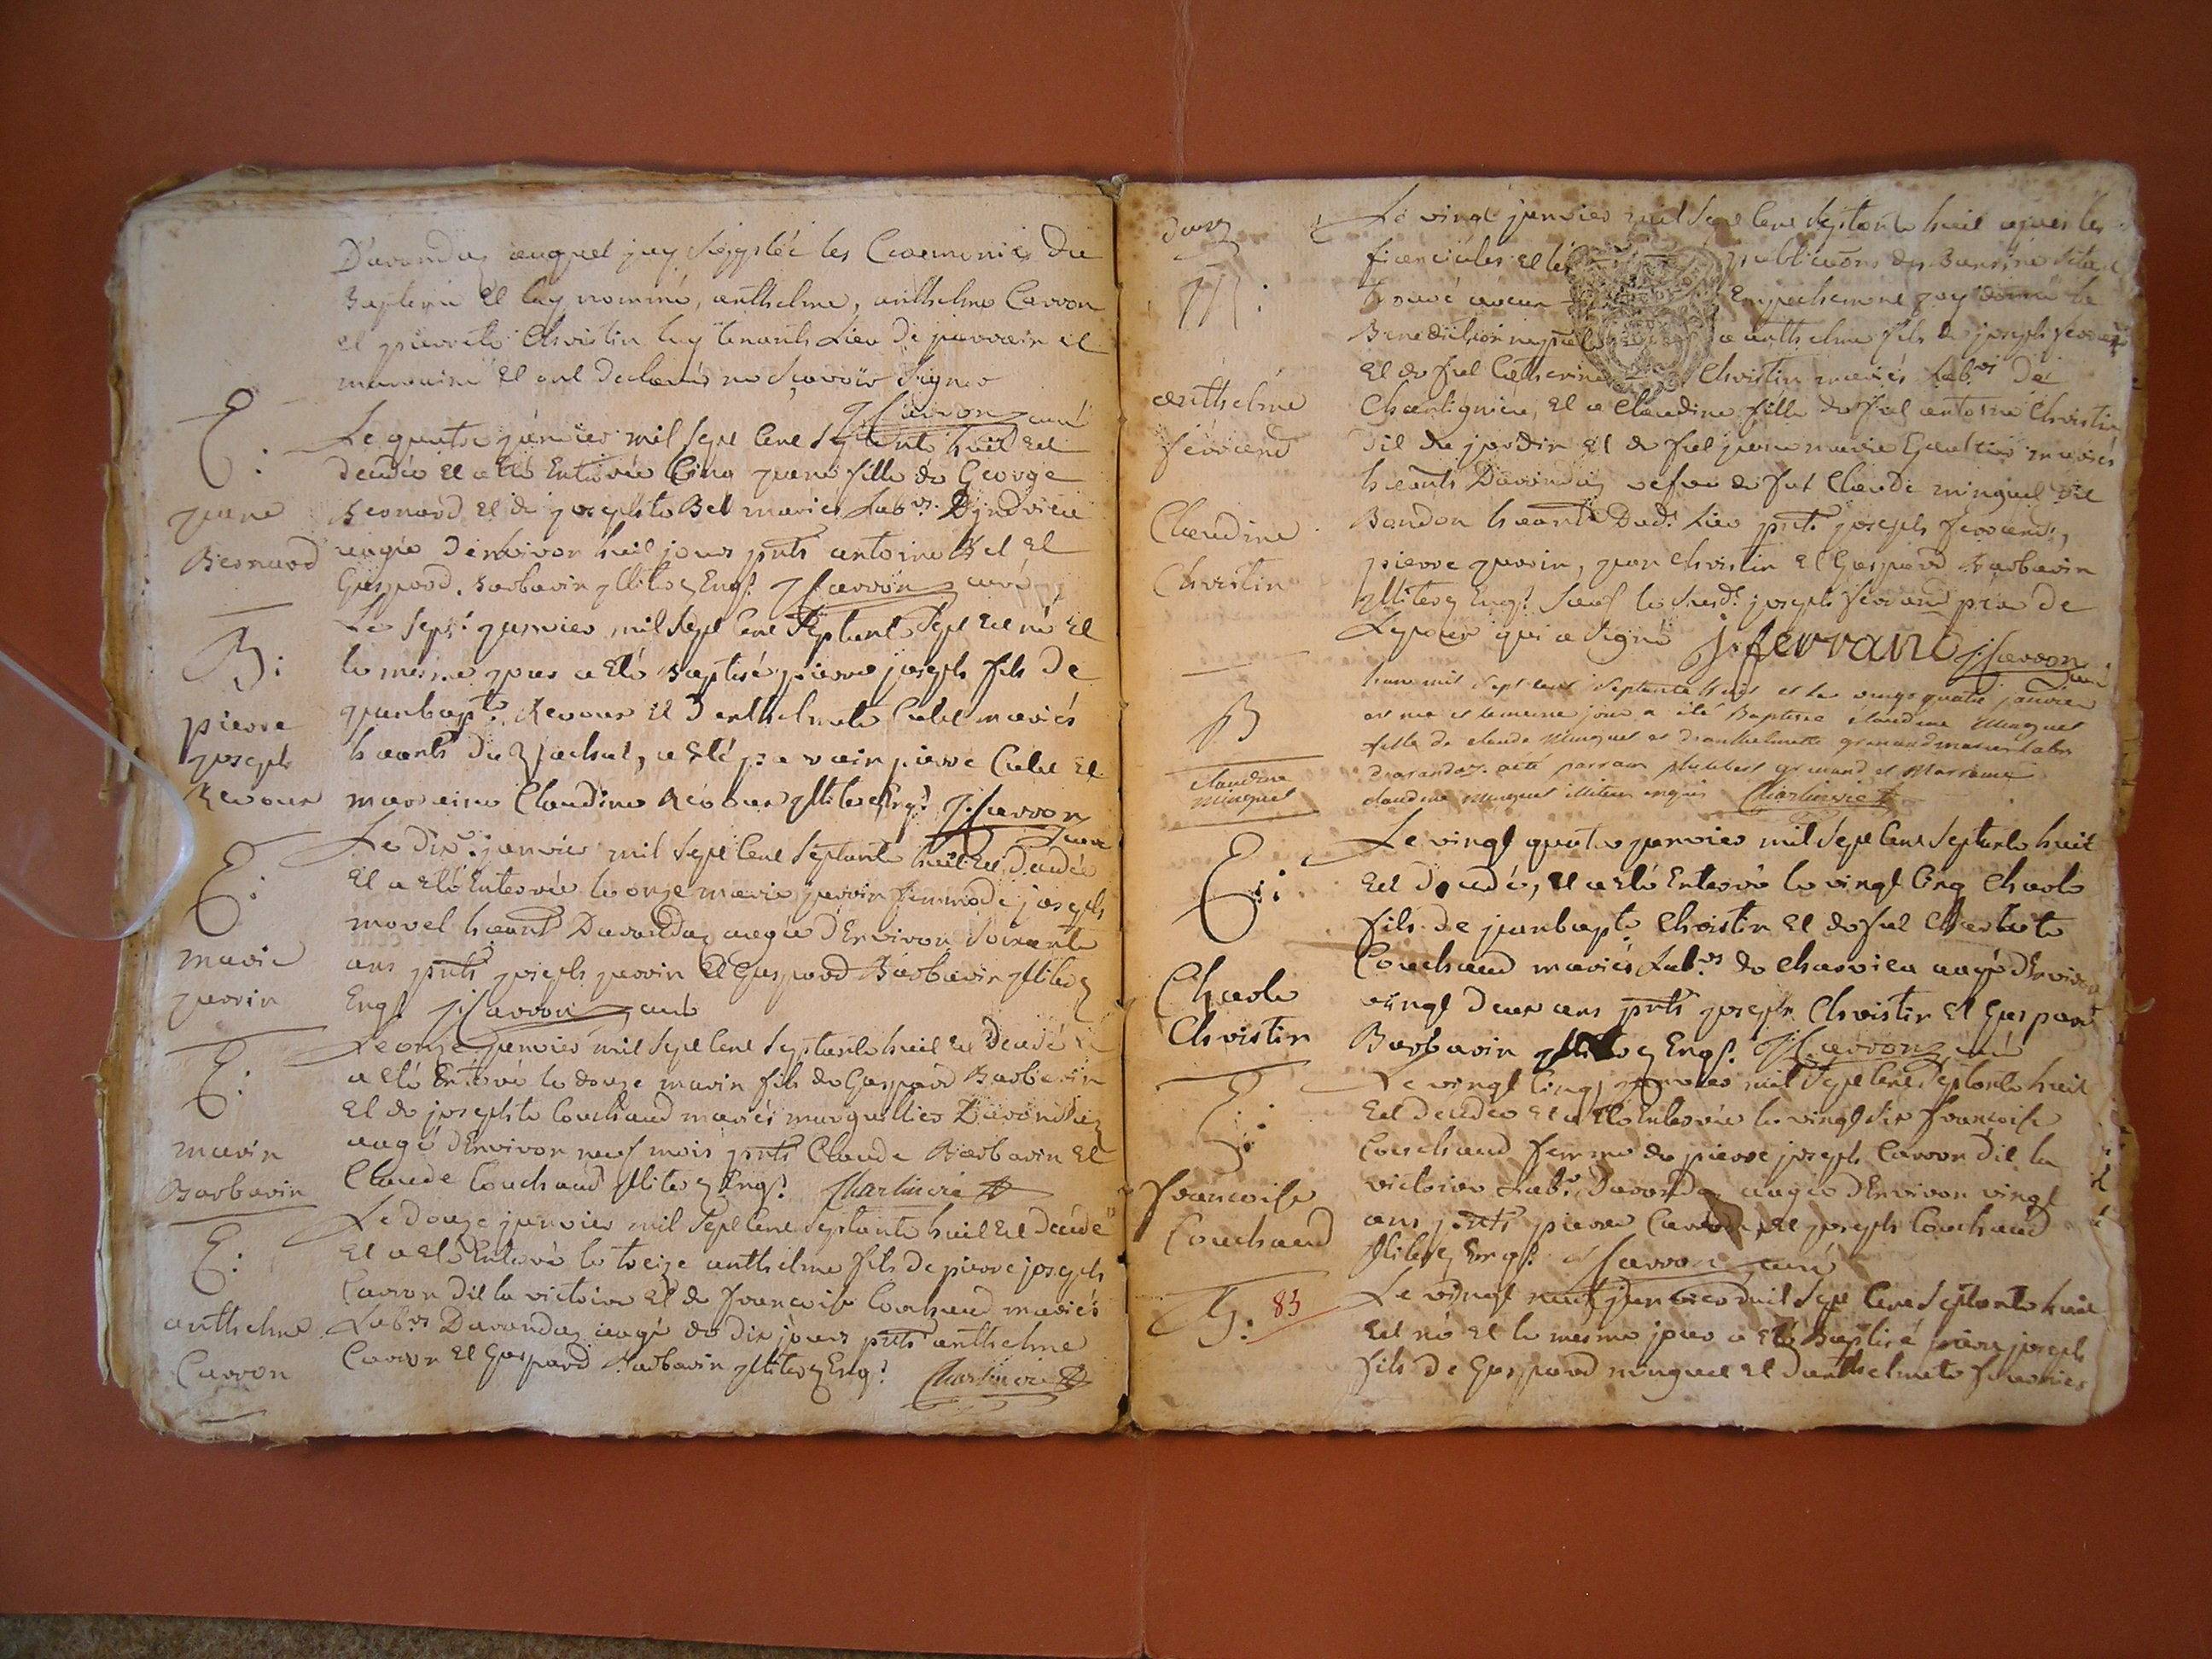 Davanda auquel jay Supplée les Ceremonies du
Bapteme Et luy nommé, anthelme, anthelme Carron
et pierrete Christin luy tenants Lieu de parrain et
maraine Et ont declarés ne Sçavoir Signer
J Carron curé
E:
jeane
Bernard
Le quatre janvier mil Sept Cent Septante huit Est
decedée Et a Eté Enterrée le Cinq jeane fille de George
Bernard Et de josephte Bel mariés Lab.rs Dyndrieu
aagée denviron huit jours pnts antoine Bel Et
Gaspard Barbarin illiteres Enq.s J Carron curé
B:
pierre
joseph
Revour
Le Sept janvier mil Sept Cent Septante Sept Est né Et
le mesme jour a Eté Baptisé pierre joseph fils de
jeanbapt.e Revour Et Danthelmete mariés
hbants du a Eté parrain pierre Et
maraine Claudine Revour illiteres Enq.s J Carron
curé
E:
marie
perrin
Le dix janvier mil Sept Cent Septante huit Est Decedée
Et a Eté Enterrée le onze marie perrin femme de joseph
morel hbant Davanda aagée dEnviron Soixante
ans pnts joseph perrin Et Gaspard Barbarin illiteres
Enq.s J Carron curé
E:
marin
Barbarin
Le onze janvier mil Sept Cent Septante huit Est Decedé Et
a Eté Enterré le douze marin fils de Gaspard Barbarin
Et de josephte Couchaud mariés marguillier Davanda
aagé dEnviron neuf mois pnts Claude Barbarin Et
Claude Couchaud illiteres Enq.s
E:
anthelme
Carron
Le douze janvier mil Sept Cent Septante huit Est decedé
Et a Eté Enterré le treize anthelme fils de pierre joseph
Carron dit la victoire Et de francoise Couchaud mariés
Lab.rs Davanda aagé de dix jours pnts anthelme
Carron Et Gaspard Barbarin illiteres Enq.s
M:
anthelme
ferrand
Claudine
Christin
Le vingt janvier mil Sept Cent Septante huit apres les
fiancailles et les publications des Bans ne Setant
trouvé aucun Empechement jay donné la
Benediction nuptiale a anthelme fils de joseph ferrand
Et de fut Catherine Christin mariés Lab.rs de
Chantignieu, Et a Claudine fille de fut antoine Christin
dit du jardin Et de fut jeane marie Gaultier mariés
hbants Davanda vefve de fut Claude minguet dit
Bandon hbante Dud.t Lieu pnts joseph ferrand,
pierre perrin, jean Christin Et Gaspard Barbarin
illiteres Enq.s Sauf le Susd.t joseph ferrand pere de
Lepoux qui a Signé J. ferrand J Carron
curé
B
claudine
minguet
Lan mil sept cent septante huit et le vingt quatre janvier
est née et le meme jour a été Baptisée claudine Minguet
fille de claude Minguet et danthelmette mariés labrs
davandaz. a été parrain philibert et Marraine
claudine Minguet illiteres enquis
E:
Charle
Christin
Le vingt quatre janvier mil Sept Cent Septante huit
Est Decedé, Et a Eté Enterré le vingt Cinq Charle
fils de jeanbapt.e Christin Et de fut
Couchaud mariés Lab.rs de charvieu aagé dEnviron
vingt Deux ans pnts joseph Christin Et Gaspard
Barbarin illiteres Enq.s J Carron curé
E:
francoise
Couchaud
Le vingt Cinq janvier mil Sept Cent Septante huit
Est decedée Et a Eté Enterrée le vingt Six francoise
Couchaud femme de pierre joseph Carron dit la
victoire Lab.r Davanda aagée dEnviron vingt
ans pnts pierre Carron Et joseph Couchaud
illiteres Enq.s J Carron curé
B: 83
Le vingt neuf janvier mil Sept Cent Septante huit
Est né Et le mesme jour a Eté Baptisé pierre joseph
fils de Gaspard minguet Et danthelmete